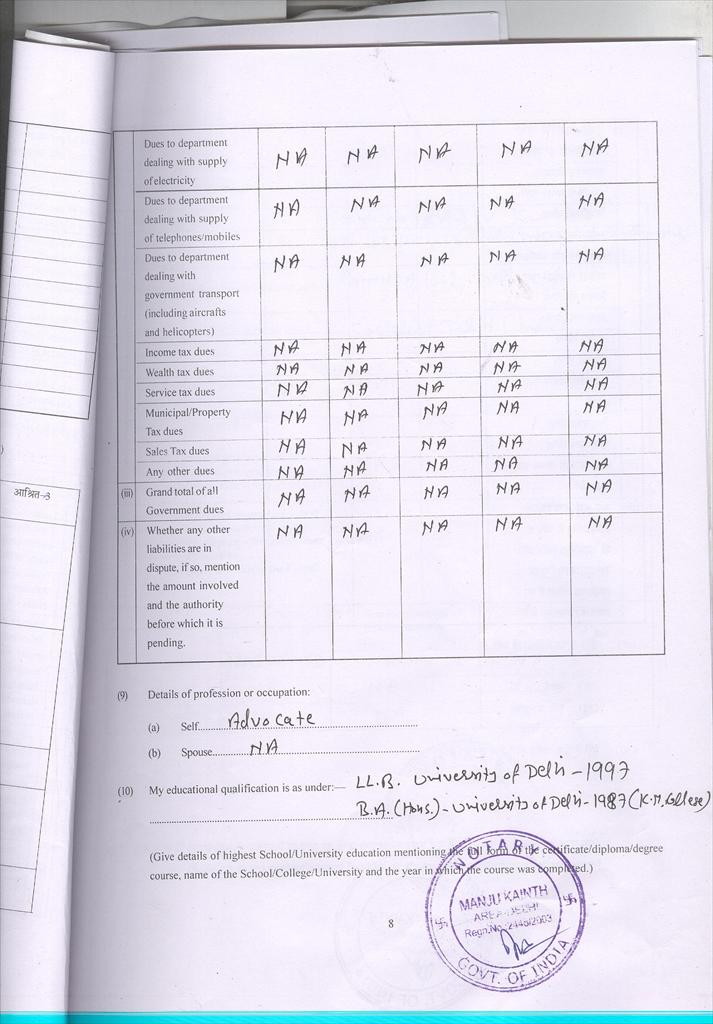 Dues to department
dealing with supply
of electricity
NA NA NA NA NA
Dues to department
dealing with supply
of telephones/mobiles
NA NA NA NA NA
Dues to department
dealing with
government transport
(including aircrafts
and helicopters)
NA NA NA NA NA
Income tax dues NA NA NA NA NA
Wealth tax dues NA NA NA NA NA
Service tax dues NA NA NA NA NA
Municipal/Property
Tax dues
NA NA NA NA NA
Sales Tax dues NA NA NA NA NA
Any other dues NA NA NA NA NA
(iii) Grand total of all
Government dues
NA NA NA NA NA
(iv) Whether any other
liabilities are in
dispute, if so, mention
the amount involved
and the authority
before which it is
pending.
NA NA NA NA NA
आश्रित-3
(9) Details of profession or occupation:
(a) Self....Advocate
(b) Spouse....NA
(10) My educational qualification is as under:— LL.B. University of Delhi - 1997
B.A. (Hons.) - University of Delhi - 1987 (K.M. College)
(Give details of highest School/University education mentioning the full form of the certificate/diploma/degree
course, name of the School/College/University and the year in which the course was completed.)
8
NOTARY
MANJU KAINTH
AREA-DELHI
Regn.No.-2448/2003
GOVT. OF INDIA